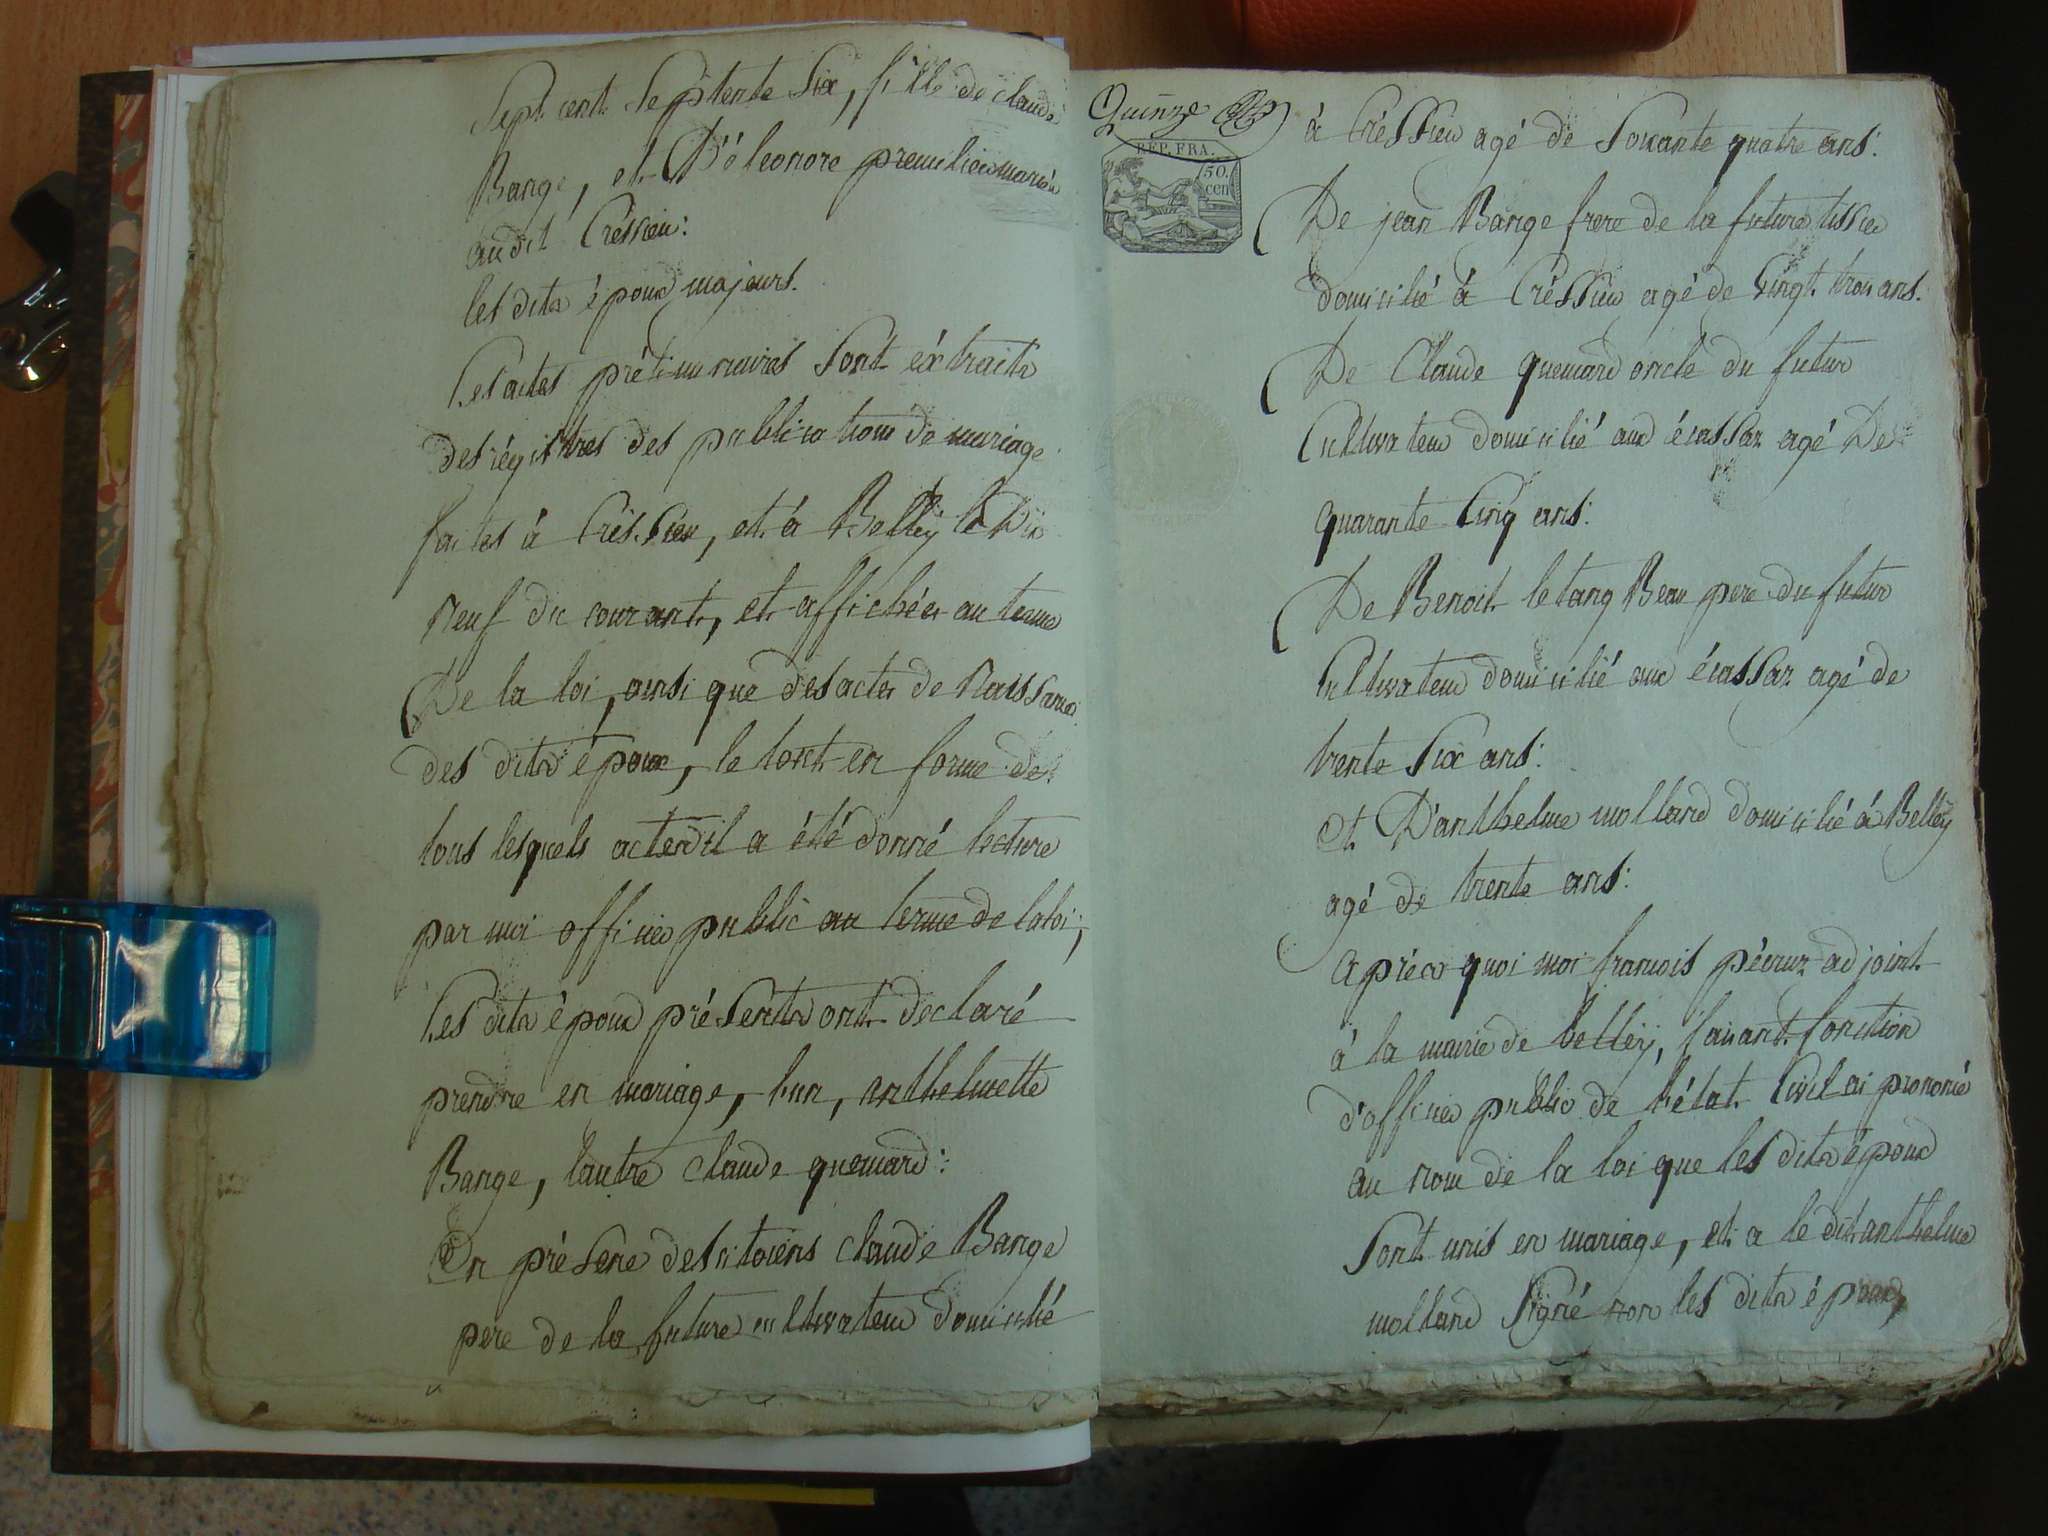 Sept cent Septente Six, fille de claude
Bange, et D'éleonore premilieu mariés
audit Créssieu:
les dits époux majeurs.
Les actes préliminaires Sont éxtraits
des régistres des publications de mariage
faites à Créssieu, et à Belleÿ le Dix
Neuf du courant, et affichées au terme
De la loi, ainsi que des actes de Naissance
des dits époux, le tout en forme de
tous lesquels actes il a été donné lecture
par moi officier public au terme de la loi;
Les dits époux présents ont declaré
prendre en mariage, l'un, anthelmette
Bange, lautre claude quemard:
En présence des citoiens claude Bange
pere de la future cultivateur domicilié
Quinze
REP. FRA.
50.
cen
à Créssieu agé de Soixante quatre ans:
De jean Bange frere de la future tissier
domicilié à Créssieu agé de Vingt trois ans.
De Claude quemard oncle du futur
Cultivateur domicilié aux écassaz agé De
quarante Cinq ans:
De Benoit letang Beau pere du futur
Cultivateur domicilié aux écassaz agé de
trente Six ans:
et D'anthelme molland domicilié à Belleÿ
agé de trente ans:
après quoi moi francois pécruz adjoint
à la mairie de belleÿ, faisant fonction
d'officier public de l'état Civil ai prononcé
au nom de la loi que les dits époux
Sont unis en mariage, et a le dit anthelme
molland Signé non les dits époux,